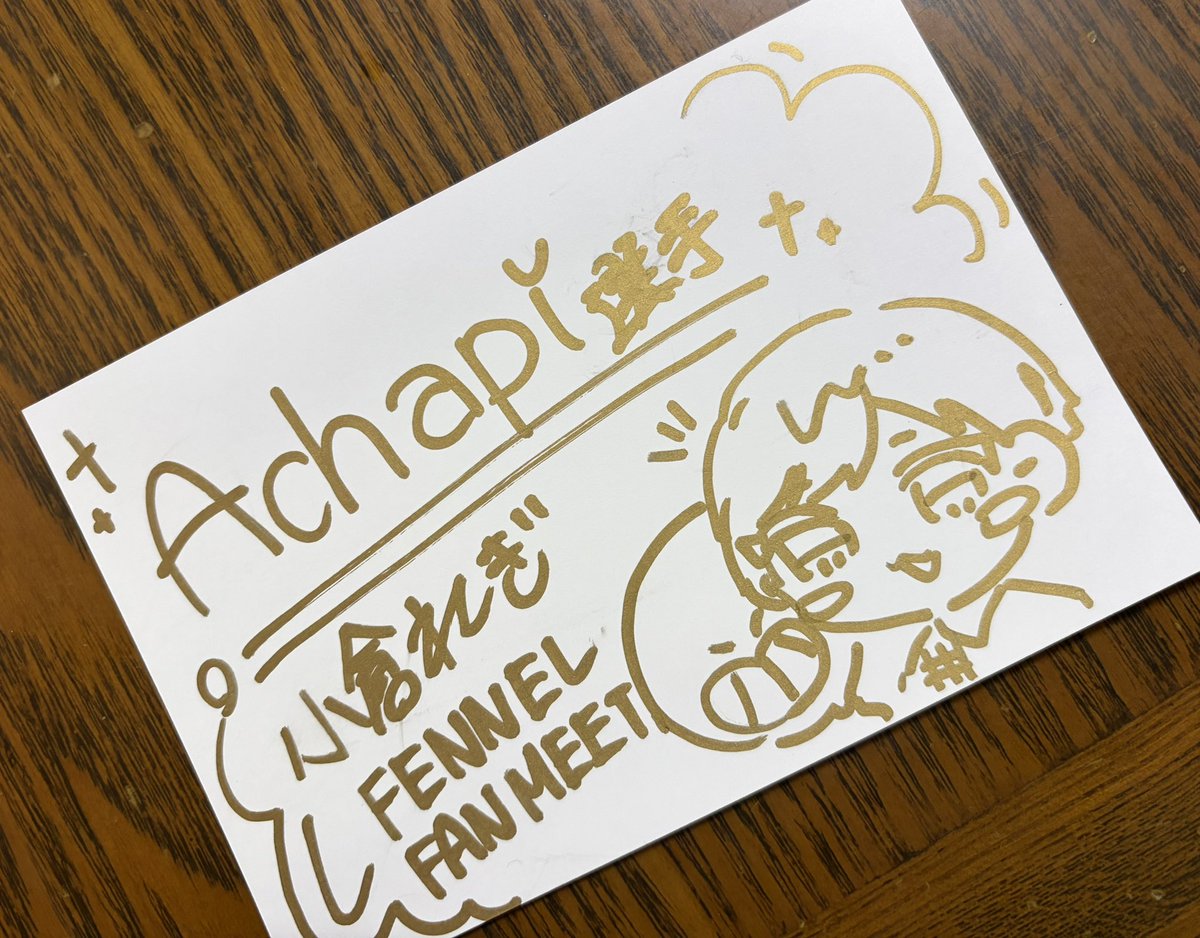 Achapi選手
小倉れぎ
FENNEL
FAN MEET!